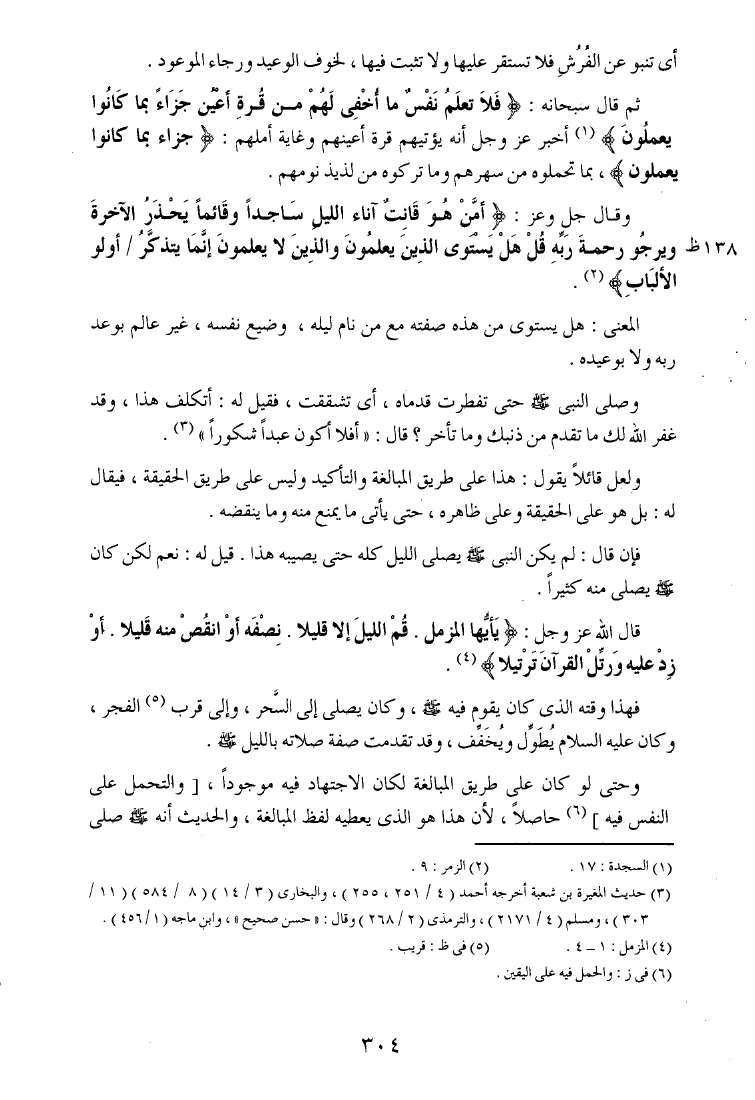 أى تنبو عن الفُرُشِ فلا تستقر عليها ولا تثبت فيها ، لخوف الوعيد ورجاء الموعود .
ثم قال سبحانه : ﴿ فَلاَ تعلَمُ نَفْسٌ ما أُخْفِى لَهُمْ مـن قُـرةِ أعْيُن جَزَاءً بما كَانُوا
يعملُونَ ﴾ (١) أخبر عز وجل أنه يؤتيهم قرة أعينهم وغاية أملهم : ﴿ جزاء بما كانوا
يعملون ﴾ ، بما تحملوه من سهرهم وما تركوه من لذيذ نومهم .
وقـال جل وعز : ﴿ أمَّنْ هُـوَ قَانتٌ آناء الليلِ سَاجـداً وقَائماً يَحْـذَرُ الآخرةَ
ويرجُو رحمـةَ ربِّه قُل هَلْ يَسْتَوى الذينَ يعلمُونَ والذينَ لا يعلمونَ إنَّمَا يتذكَّرُ / أولو
١٣٨ ظ
الألبَابِ ﴾ (٢) .
المعنى : هل يستوى من هذه صفته مع من نام ليله ، وضيع نفسه ، غير عالم بوعد
ربه ولا بوعيده .
وصلى النبى ﷺ حتى تفطرت قدماه ، أى تشققت ، فقيل له : أتكلف هذا ، وقد
غفر الله لك ما تقدم من ذنبك وما تأخر ؟ قال : « أفلا أكون عبداً شكوراً » (٣) .
ولعل قائلاً يقول : هذا على طريق المبالغة والتأكيد وليس على طريق الحقيقة ، فيقال
له : بل هو على الحقيقة وعلى ظاهره ، حتى يأتى ما يمنع منه وما ينقضه .
فإن قال : لم يكن النبى ﷺ يصلى الليل كله حتى يصيبه هذا . قيل له : نعم لكن كان
ﷺ يصلى منه كثيراً .
قال الله عز وجل : ﴿ يَأيُّها المزمل . قُمْ الليلَ إلا قليلا . نِصْفَه أوْ انقُصْ منه قَليلا . أوْ
زِدْ عليه وَرَتِّلْ القرآنَ تَرْتيلا ﴾ (٤) .
فهذا وقته الذى كان يقوم فيه ﷺ ، وكان يصلى إلى السَّحر ، وإلى قرب (٥) الفجر ،
وكان عليه السلام يُطَوِّل ويُخَفِّف ، وقد تقدمت صفة صلاته بالليل ﷺ .
وحتى لو كان على طريق المبالغة لكان الاجتهاد فيه موجوداً ، [ والتحمل على
النفس فيه ] (٦) حاصلاً ، لأن هذا هو الذى يعطيه لفظ المبالغة ، والحديث أنه ﷺ صلى
(١) السجدة : ١٧ . (٢) الزمر : ٩ .
(٣) حديث المغيرة بن شعبة أخرجه أحمد ( ٤ / ٢٥١ ، ٢٥٥ ) ، والبخارى ( ٣ / ١٤ ) ( ٨ / ٥٨٤ ) ( ١١ /
٣٠٣ ) ، ومسلم ( ٤ / ٢١٧١ ) ، والترمذى ( ٢ / ٢٦٨ ) وقال : « حسن صحيح » ، وابن ماجه ( ١ / ٤٥٦ ) .
(٤) المزمل : ١ – ٤ . (٥) فى ظ : قريب .
(٦) فى ز : والحمل فيه على اليقين .
٣٠٤